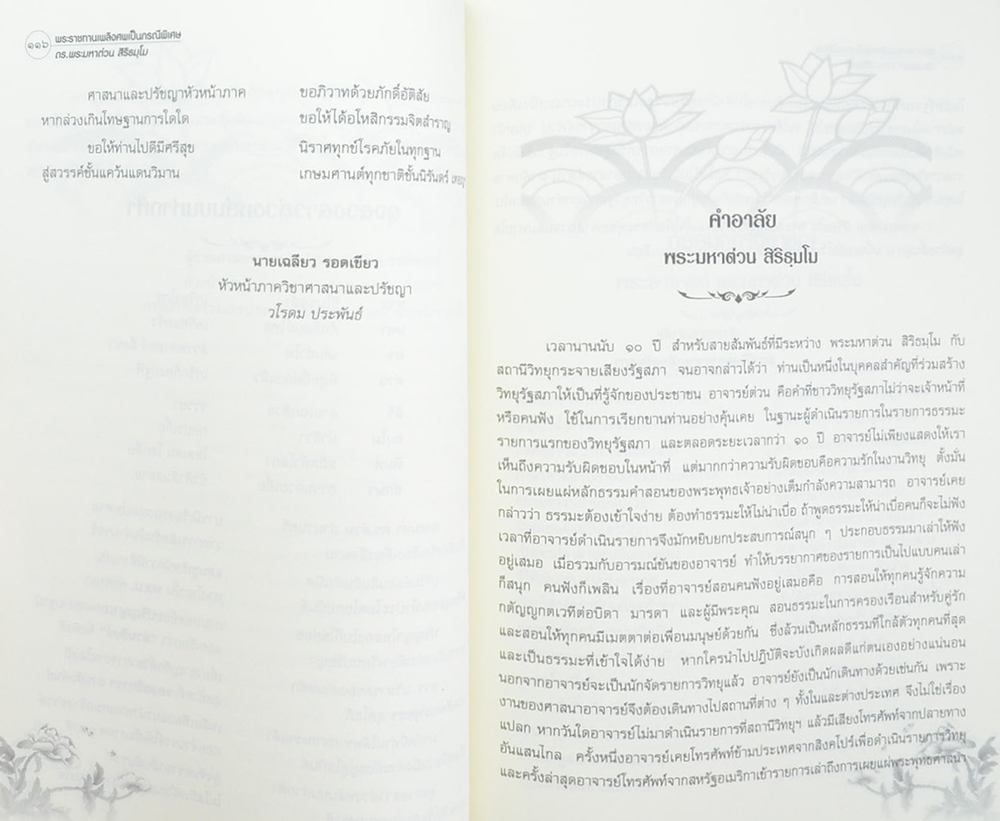 ๑๑๖
พระราชทานเพลิงศพเป็นกรณีพิเศษ
ดร.พระมหาต่วน สิริธมฺโม
ศาสนาและปรัชญาหัวหน้าภาค ขอภิวาทด้วยภักดิ์อัติสัย
หากล่วงเกินโทษฐานการใดใด ขอให้ได้อโหสิกรรมจิตสำราญ
ขอให้ท่านไปดีมีศรีสุข นิราศทุกข์โรคภัยในทุกฐาน
สู่สวรรค์ชั้นแคว้นแดนวิมาน เกษมศานต์ทุกชาติชั้นนิรันดร์
นายเฉลียว รอดเขียว
หัวหน้าภาควิชาศาสนาและปรัชญา
วโรดม ประพันธ์
คำอาลัย
พระมหาต่วน สิริธมฺโม
เวลานานนับ ๑๐ ปี สำหรับสายสัมพันธ์ที่มีระหว่าง พระมหาต่วน สิริธมฺโม กับ
สถานีวิทยุกระจายเสียงรัฐสภา จนอาจกล่าวได้ว่า ท่านเป็นหนึ่งในบุคคลสำคัญที่ร่วมสร้าง
วิทยุรัฐสภาให้เป็นที่รู้จักของประชาชน อาจารย์ต่วน คือคำที่ชาววิทยุรัฐสภาไม่ว่าจะเจ้าหน้าที่
หรือคนฟัง ใช้ในการเรียกขานท่านอย่างคุ้นเคย ในฐานะผู้ดำเนินรายการในรายการธรรมะ
รายการแรกของวิทยุรัฐสภา และตลอดระยะเวลากว่า ๑๐ ปี อาจารย์ไม่เพียงแสดงให้เรา
เห็นถึงความรับผิดชอบในหน้าที่ แต่มากกว่าความรับผิดชอบคือความรักในงานวิทยุ ตั้งมั่น
ในการเผยแผ่หลักธรรมคำสอนของพระพุทธเจ้าอย่างเต็มกำลังความสามารถ อาจารย์เคย
กล่าวว่า ธรรมะต้องเข้าใจง่าย ต้องทำธรรมะให้ไม่น่าเบื่อ ถ้าพูดธรรมะให้น่าเบื่อคนก็จะไม่ฟัง
เวลาที่อาจารย์ดำเนินรายการจึงมักหยิบยกประสบการณ์สนุก ๆ ประกอบธรรมมาเล่าให้ฟัง
อยู่เสมอ เมื่อรวมกับอารมณ์ขันของอาจารย์ ทำให้บรรยากาศของรายการเป็นไปแบบคนเล่า
ก็สนุก คนฟังก็เพลิน เรื่องที่อาจารย์สอนคนฟังอยู่เสมอคือ การสอนให้ทุกคนรู้จักความ
กตัญญูกตเวทีต่อบิดา มารดา และผู้มีพระคุณ สอนธรรมะในการครองเรือนสำหรับคู่รัก
และสอนให้ทุกคนมีเมตตาต่อเพื่อนมนุษย์ด้วยกัน ซึ่งล้วนเป็นหลักธรรมที่ใกล้ตัวทุกคนที่สุด
และเป็นธรรมะที่เข้าใจได้ง่าย หากใครนำไปปฏิบัติจะบังเกิดผลดีแก่ตนเองอย่างแน่นอน
นอกจากอาจารย์จะเป็นนักจัดรายการวิทยุแล้ว อาจารย์ยังเป็นนักเดินทางด้วยเช่นกัน เพราะ
งานของศาสนาอาจารย์จึงต้องเดินทางไปสถานที่ต่าง ๆ ทั้งในและต่างประเทศ จึงไม่ใช่เรื่อง
แปลก หากวันใดอาจารย์ไม่มาดำเนินรายการที่สถานีวิทยุฯ แล้วมีเสียงโทรศัพท์จากปลายทาง
อันแสนไกล ครั้งหนึ่งอาจารย์เคยโทรศัพท์ข้ามประเทศจากสิงคโปร์เพื่อดำเนินรายการวิทยุ
และครั้งล่าสุดอาจารย์โทรศัพท์จากสหรัฐอเมริกาเข้ารายการเล่าถึงการเผยแผ่พระพุทธศาสนา